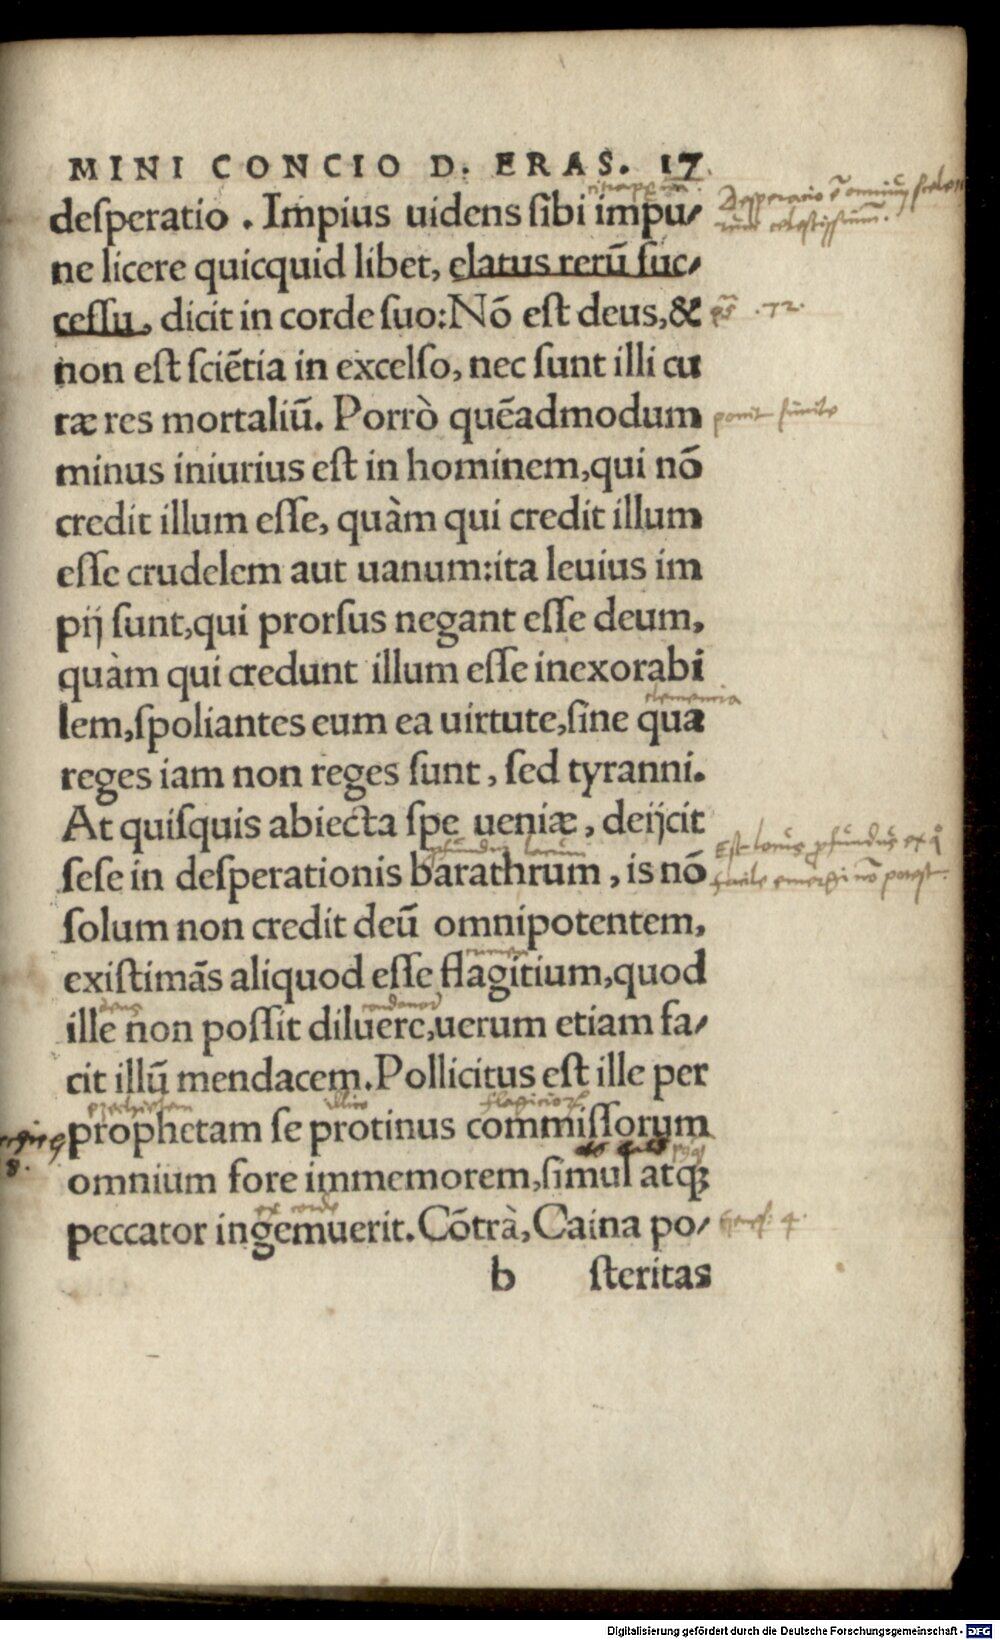 MINI CONCIO D. ERAS. 17
deſperatio . Impius uidens ſibi impu⸗
ne licere quicquid libet, elatus rerũ ſuc⸗
ceſſu, dicit in corde ſuo: Nõ eſt deus, &
ps .72.
non eſt ſciẽtia in excelſo, nec ſunt illi cu
ræ res mortaliũ. Porrò quẽadmodum
minus iniurius eſt in hominem, qui nõ
credit illum eſſe, quàm qui credit illum
eſſe crudelem aut uanum: ita leuius im
pij ſunt, qui prorſus negant eſſe deum,
quàm qui credunt illum eſſe inexorabi
clementia
lem, ſpoliantes eum ea uirtute, ſine qua
reges iam non reges ſunt, ſed tyranni.
At quiſquis abiecta ſpe ueniæ, deijcit
Est locus ꝓfundus ex q̊
facile emergi nõ potest.
ſeſe in deſperationis barathrum, is nõ
ſolum non credit deũ omnipotentem,
exiſtimãs aliquod eſſe flagitium, quod
deus condonare
ille non poſſit diluere, uerum etiam fa⸗
cit illũ mendacem. Pollicitus eſt ille per
illico
prophetam ſe protinus commiſſorum
8.
omnium fore immemorem, ſimul atq;
ex corde
peccator ingemuerit. Cõtrà, Caina po⸗
4.
b ſteritas
Digitalisierung gefördert durch die Deutsche Forschungsgemeinschaft - DFG